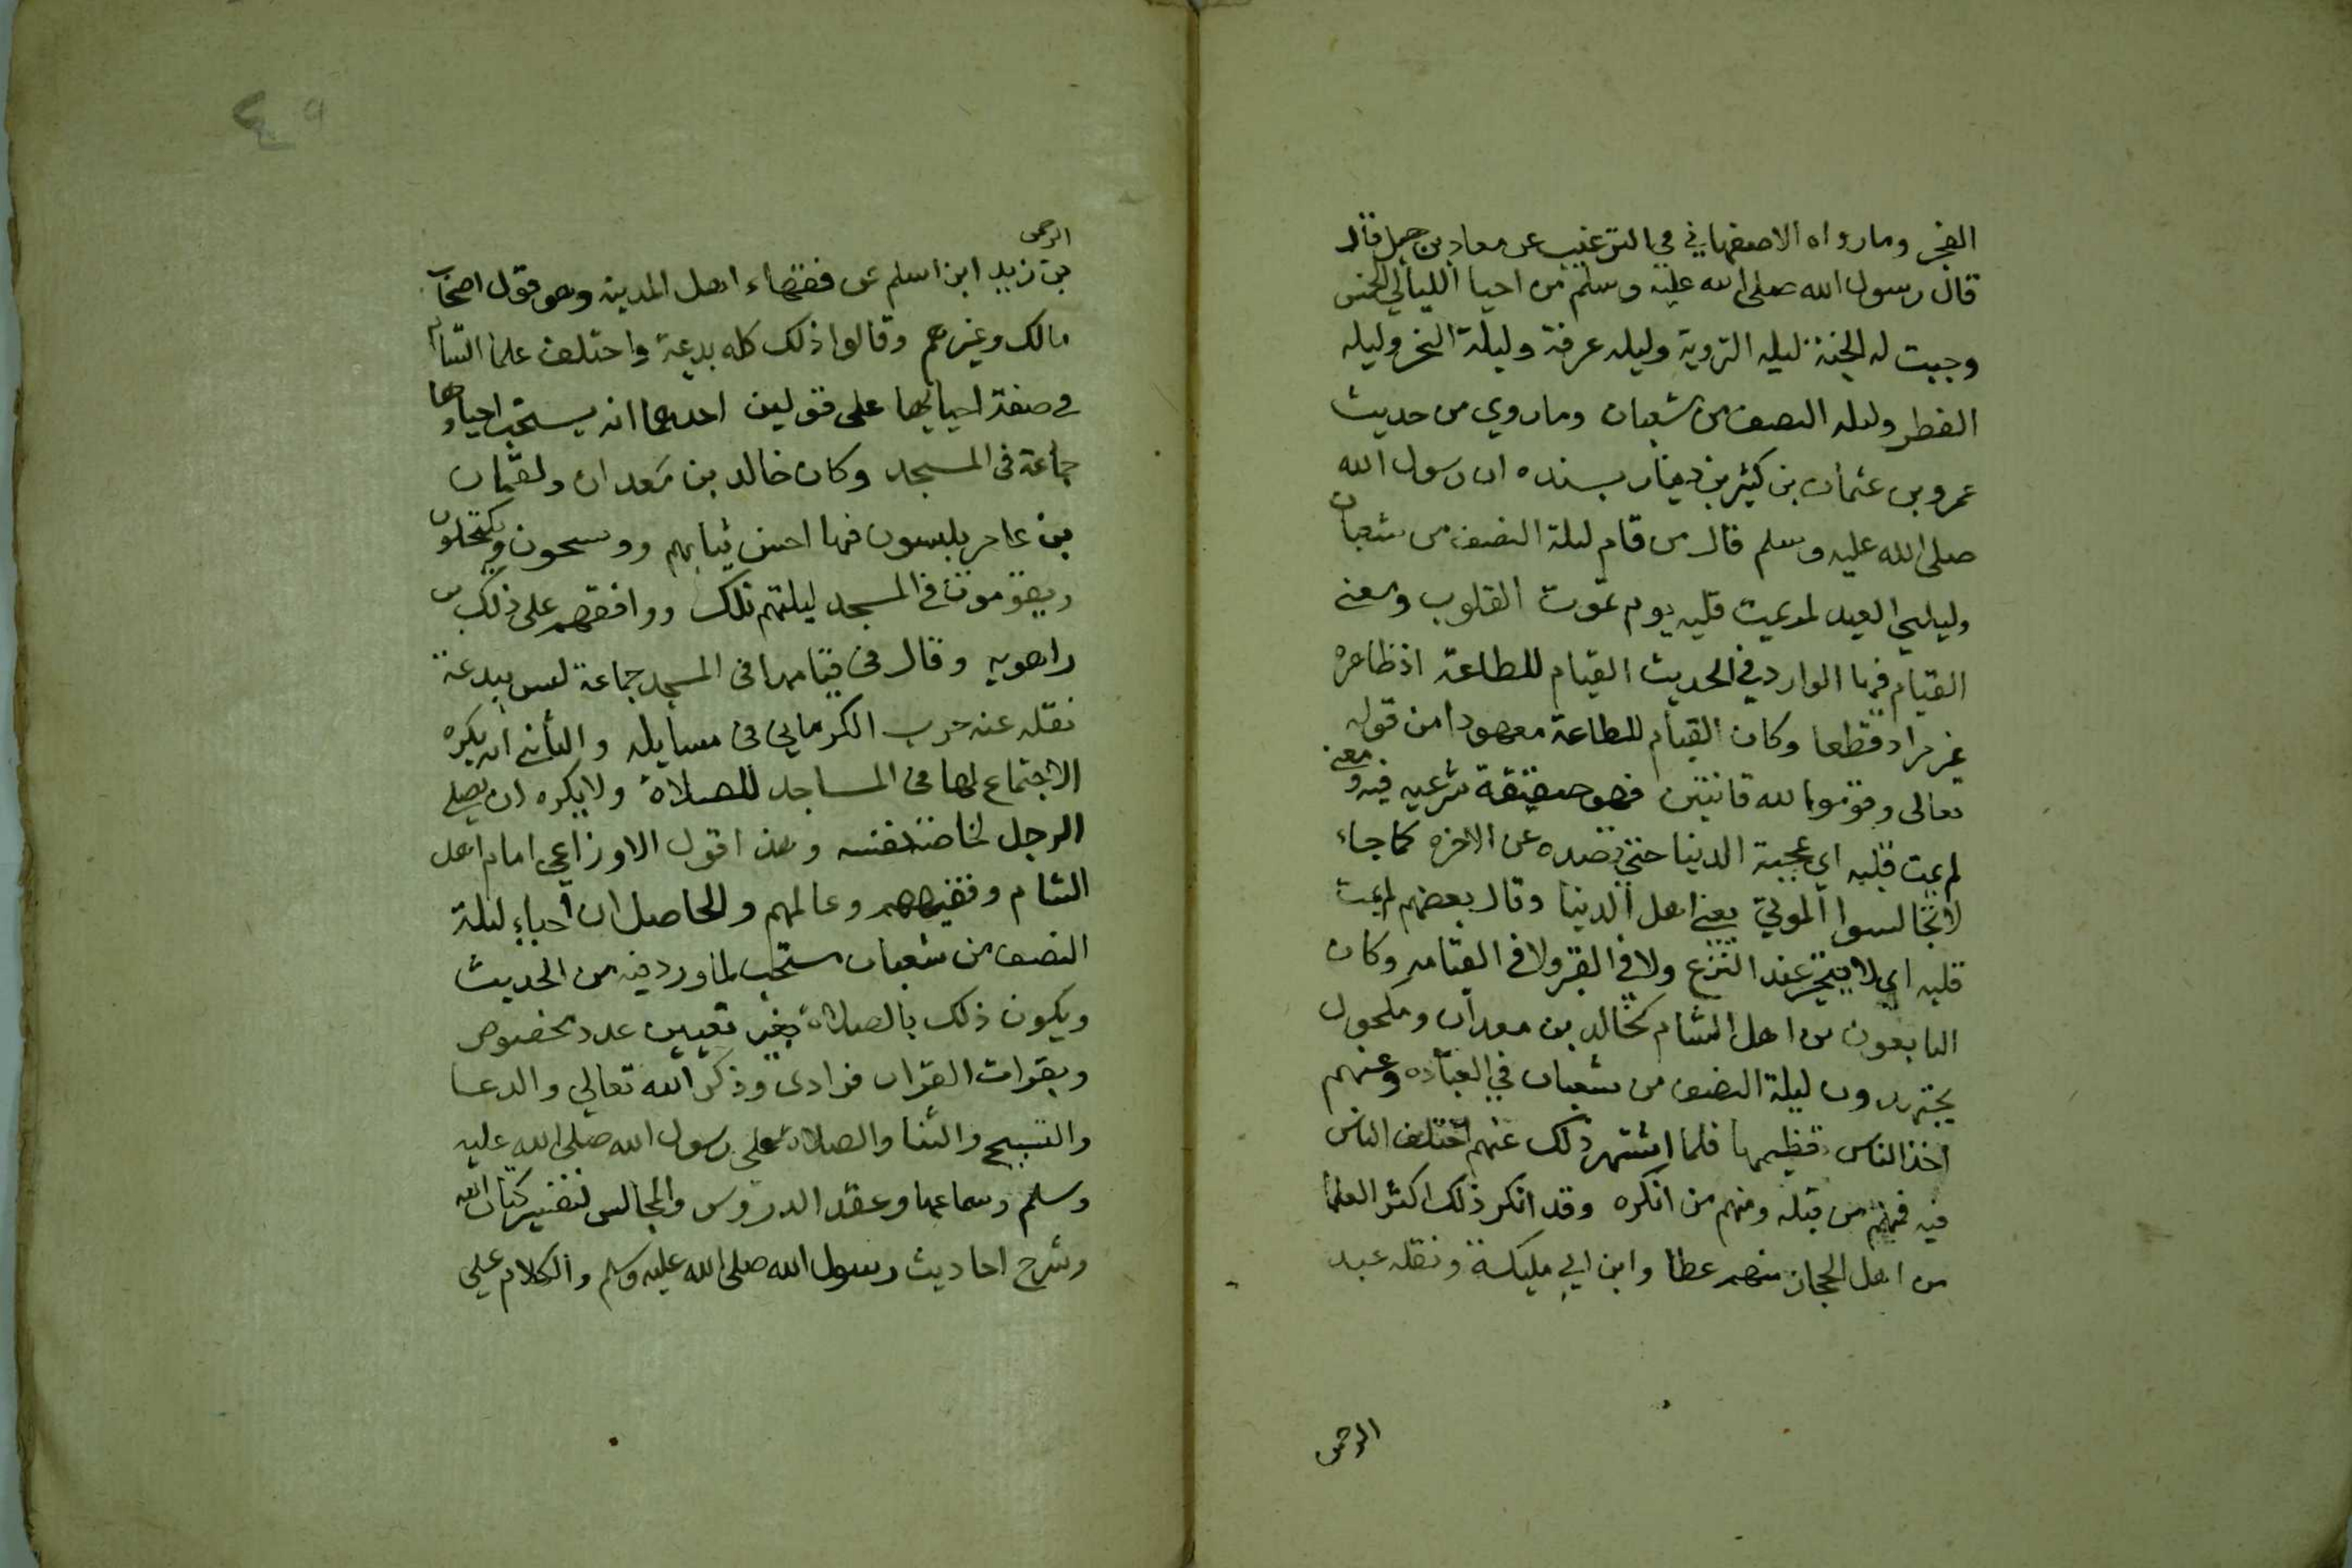 الفجر وما رواه الاصفهاني في الترغيب عن معاد بن جبل قال
قال رسول الله صلى الله عليه وسلم من احيا الليالي الخمس
وجبت له الجنة ليله التروية وليله عرفة وليلة النحر وليله
الفطر وليله النصف من شعبان وما روي من حديث
عمرو بن عثمان بن كثير بن دينار بسنده ان رسول الله
صلى الله عليه وسلم قال من قام ليلة النصف من شعبان
وليلتي العيد لم يمت قلبه يوم تموت القلوب ومعنى
القيام فيها الوارد في الحديث القيام للطاعة اذ ظاهره
غير مراد قطعا وكان القيام للطاعة معهودا من قوله
تعالى وقوموا لله قانتين فهو حقيقة شرعيه فيه ومعنى
لم يمت قلبه اي بمحبة الدنيا حتى تصده عن الاخره كما جاء
لا تجالسوا الموتي يعني اهل الدنيا وقال بعضهم لم يمت
قلبه اي لا يتحير عند النزع ولا في القبر ولا في القيامه وكان
التابعون من اهل الشام كخالد بن معدان ومكحول
يجتهدون ليلة النصف من شعبان في العباده وعنهم
اخذ الناس تعظيمها فلما اشتهر ذلك عنهم اختلف الناس
فيه فمنهم من قبله ومنهم من انكره وقد انكر ذلك اكثر العلما
من اهل الحجاز منهم عطا وابن ابي مليكة ونقله عبد
الرحمن
٤٥
الرحمن
بن زيد ابن اسلم عن فقهاء اهل المدينه وهو قول اصحاب
مالك وغيرهم وقالوا ذلك كله بدعة واختلف علما الشام
في صفة احيائها على قولين احدهما انه يستحب احياوها
جماعة في المسجد وكان خالد بن معدان ولقمان
بن عامر يلبسون فيها احسن ثيابهم ويكتحلون
ويقومون في المسجد ليلتهم تلك ووافقهم على ذلك بن
راهويه وقال في قيامها في المسجد جماعة ليس ببدعة
نقله عنه حرب الكرماني في مسايله والثاني انه يكره
الاجتماع لها في المساجد للصلاة ولا يكره ان يصلي
الرجل لخاصة نفسه وهذا قول الاوزاعي امام اهل
الشام وفقيههم وعالمهم والحاصل ان احياء ليلة
النصف من شعبان مستحب لما ورد فيه من الحديث
ويكون ذلك بالصلاة بغير تعيين عدد مخصوص
وبقرات القران فرادى وذكر الله تعالي والدعا
والتسبيح والثنا والصلاة على رسول الله صلى الله عليه
وسلم وسماعها وعقد الدروس والمجالس لتفسير كتاب الله
وشرح احاديث رسول الله صلى الله عليه وسلم والكلام علي